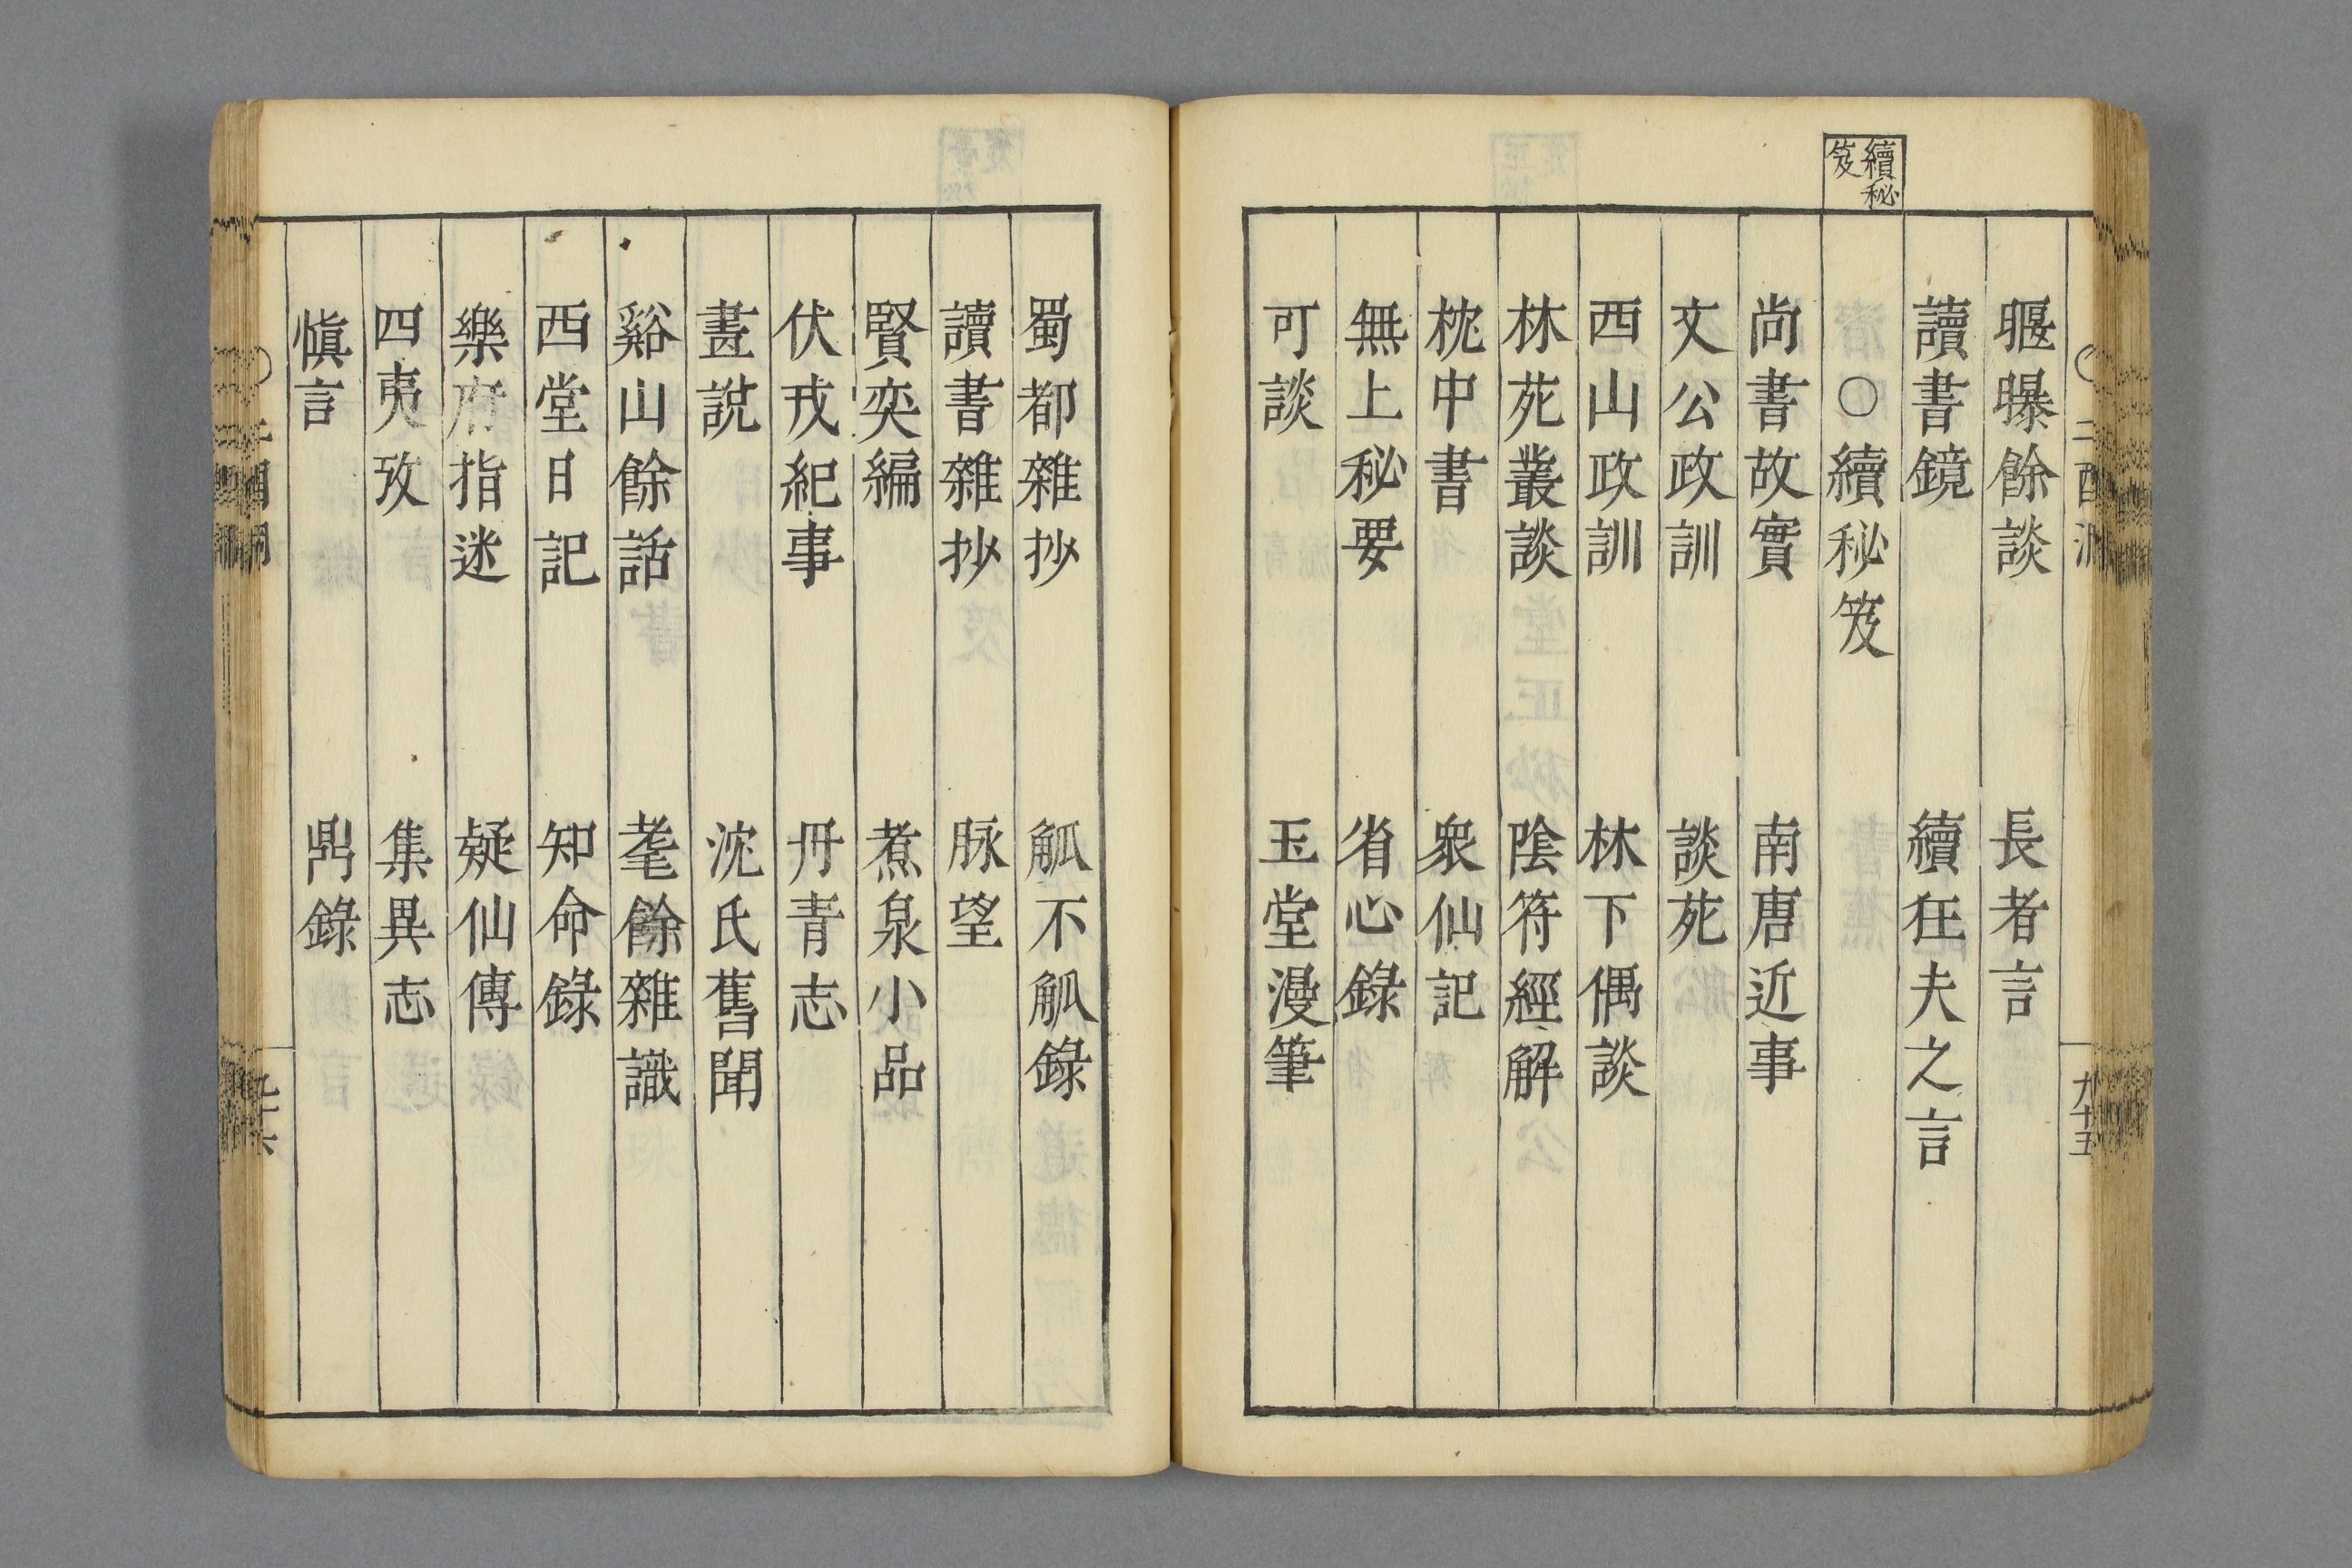 續秘笈
偃曝餘談　長者言
讀書鏡　續狂夫之言
○續秘笈
尚書故實　南唐近事
文公政訓　談苑
西山政訓　林下偶談
林苑叢談　陰符經解
枕中書　衆仙記
無上秘要　省心錄
可談　玉堂漫筆
九十五
蜀都雜抄　觚不觚錄
讀書雜抄　脉望
賢奕編　煮泉小品
伏戎紀事　丹青志
畫說　沈氏舊聞
谿山餘話　耄餘雜識
西堂日記　知命錄
樂府指迷　疑仙傳
四夷攷　集異志
慎言　鼎錄